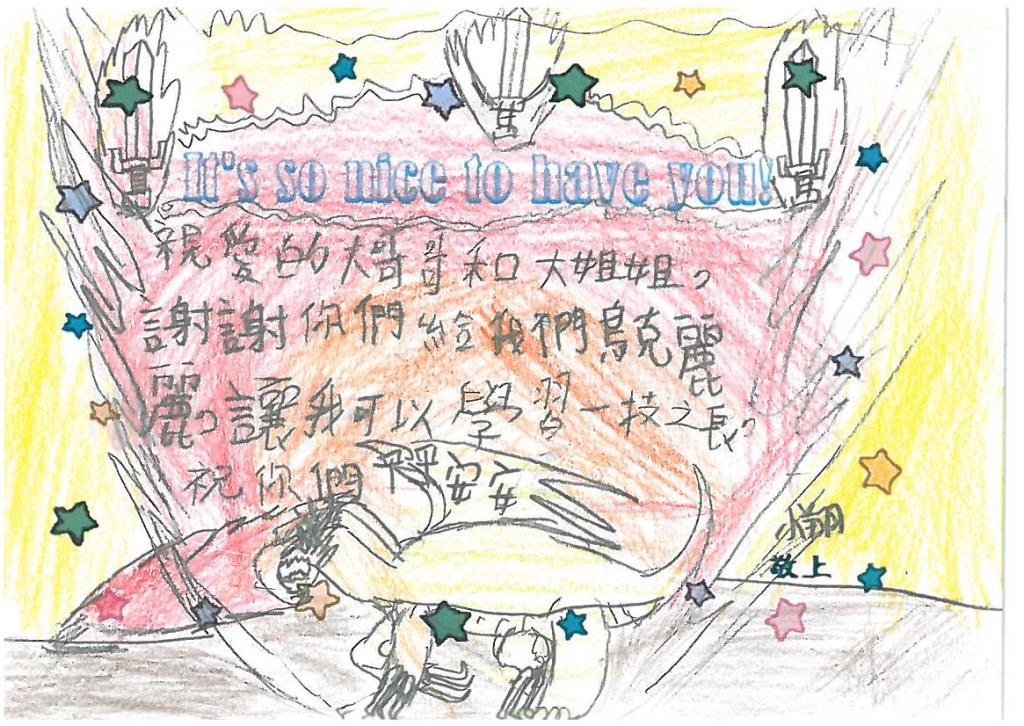 It's so nice to have you!
親愛的大哥哥和大姐姐。
謝謝你們給我們烏克麗
麗。讓我可以學習一技之長。
祝你們平平安安
小翔
敬上